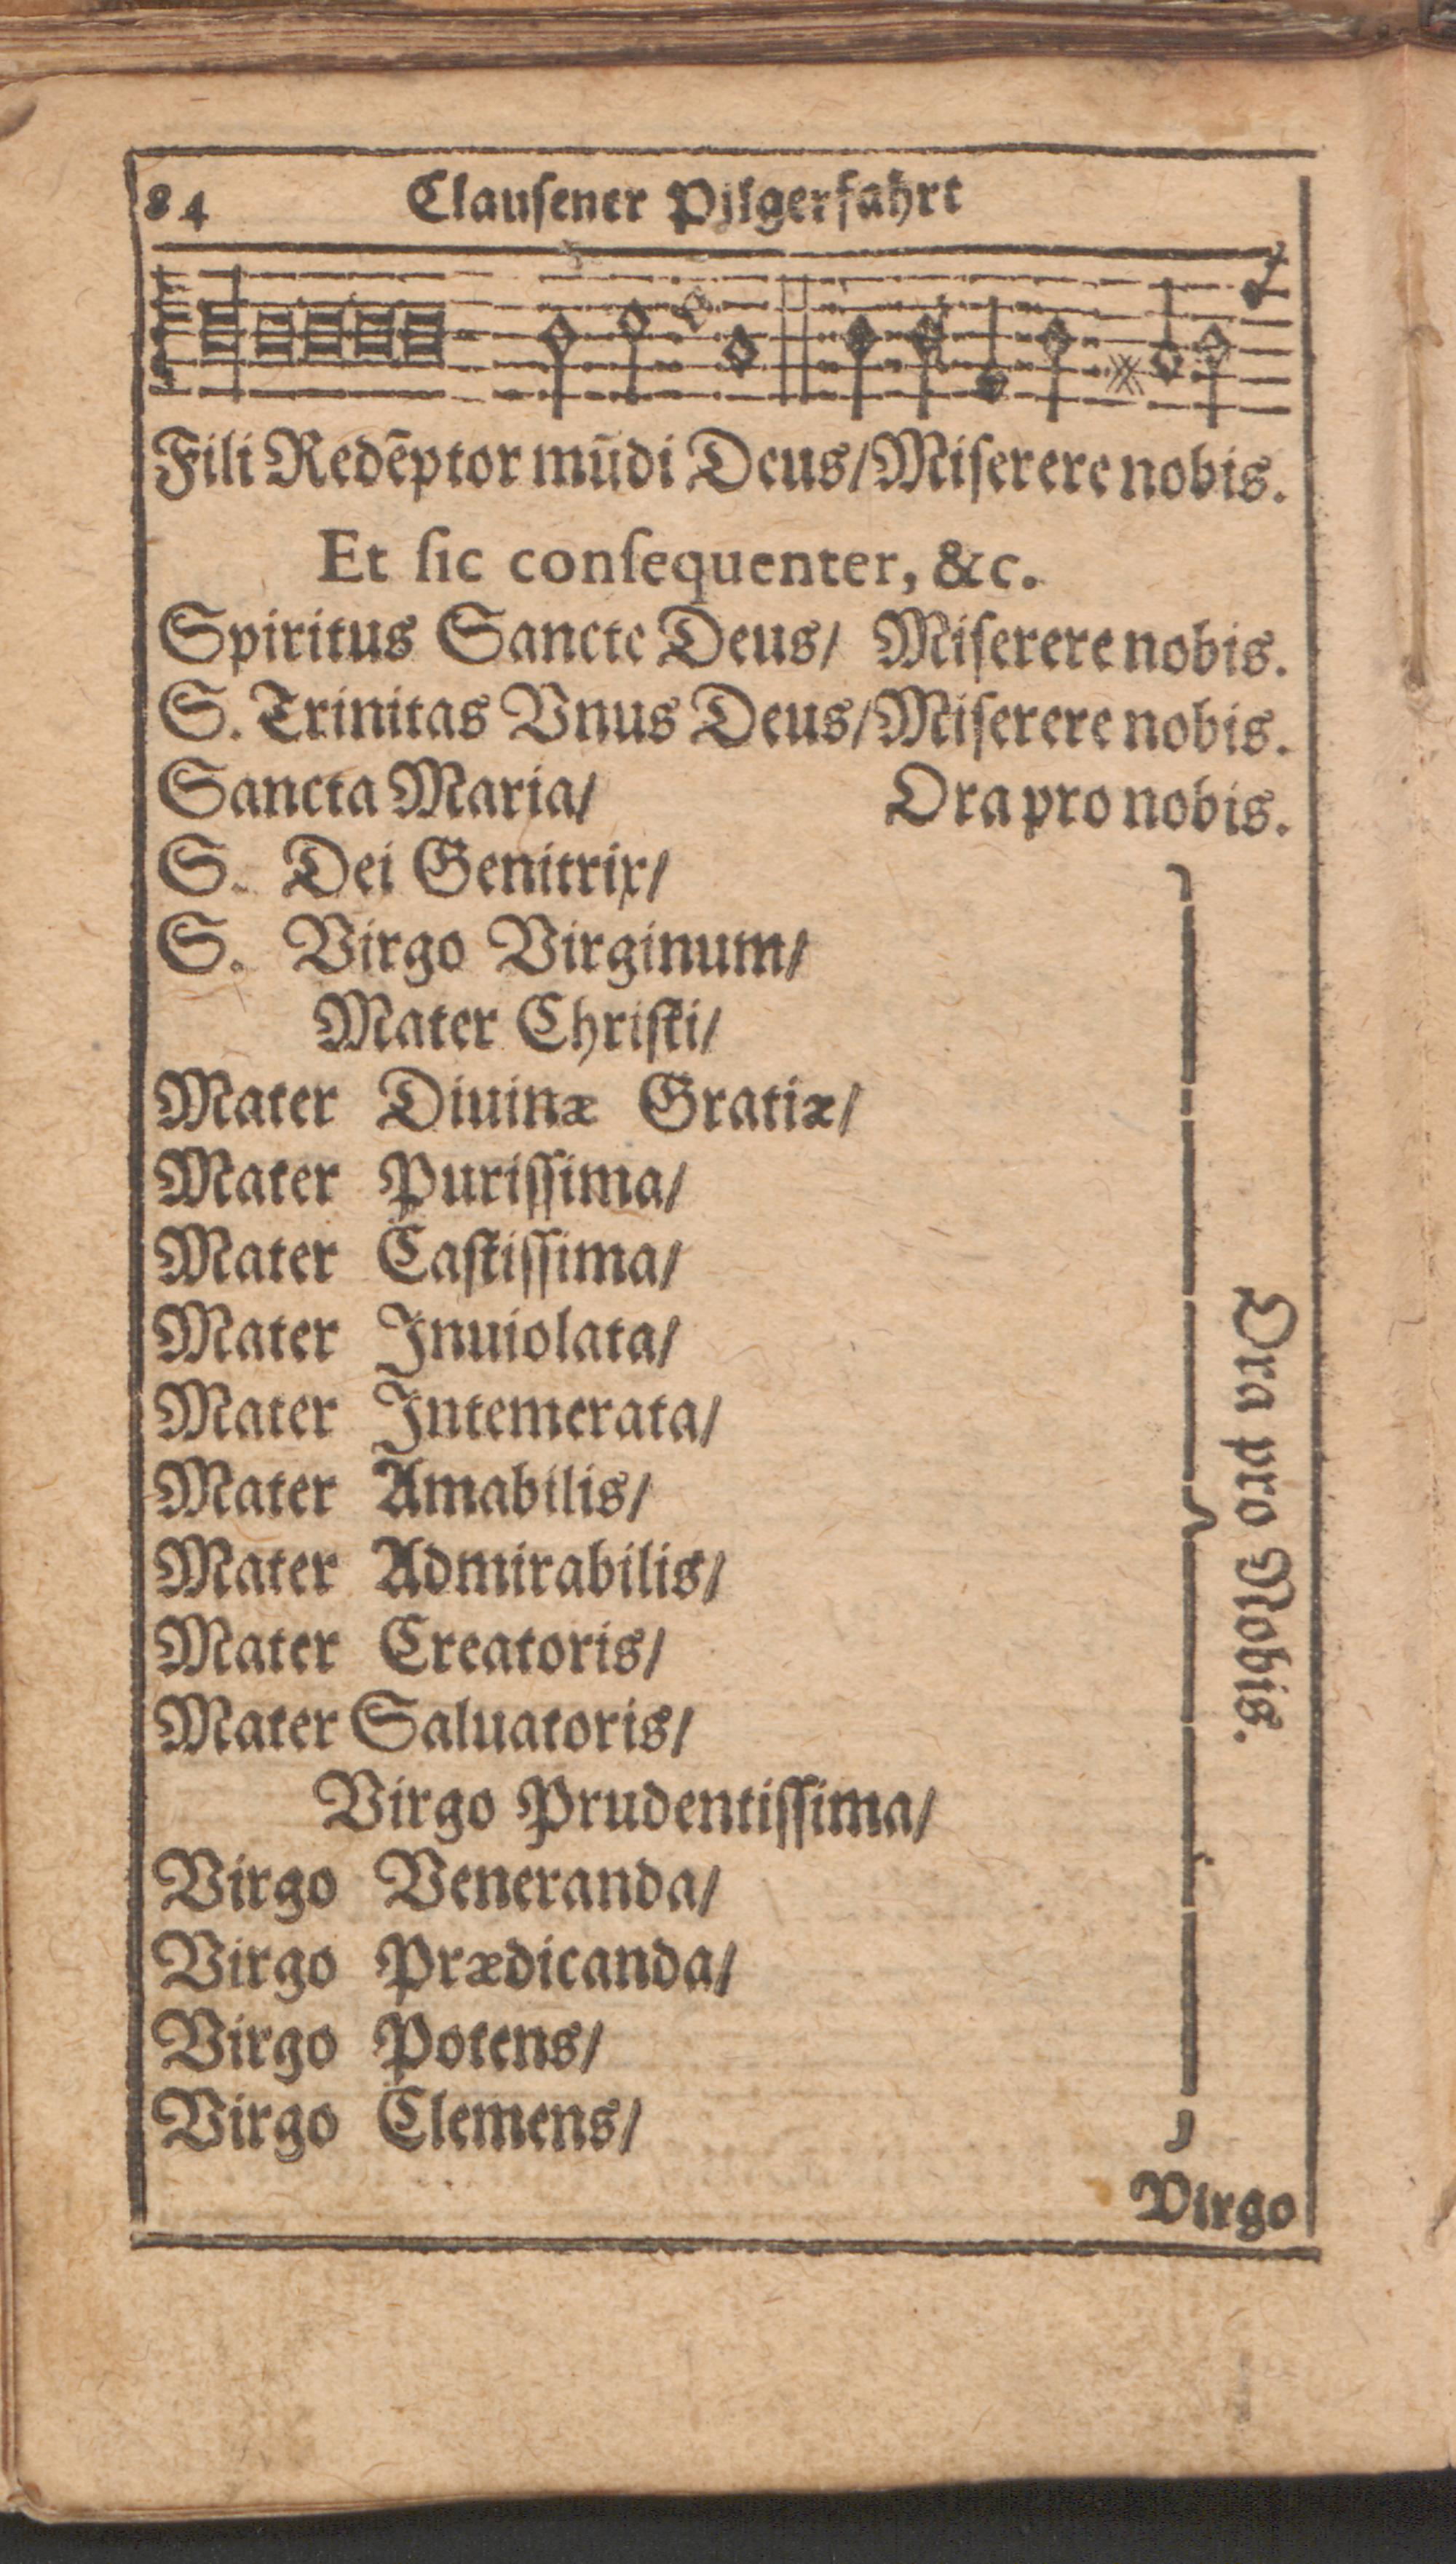 84 Clausener Pilgerfahrt
Fili Redēptor mūdi Deus/Miserere nobis.
Et sic consequenter, &c.
Spiritus Sancte Deus/ Miserere nobis.
S. Trinitas Vnus Deus/Miserere nobis.
Sancta Maria/ Ora pro nobis.
S. Dei Genitrix/
S. Virgo Virginum/
Mater Christi/
Mater Diuinæ Gratiæ/
Mater Purissima/
Mater Castissima/
Mater Inuiolata/
Mater Intemerata/
Mater Amabilis/
Mater Admirabilis/
Mater Creatoris/
Mater Saluatoris/
Virgo Prudentissima/
Virgo Veneranda/
Virgo Prædicanda/
Virgo Potens/
Virgo Clemens/
Ora pro Nobis.
Virgo